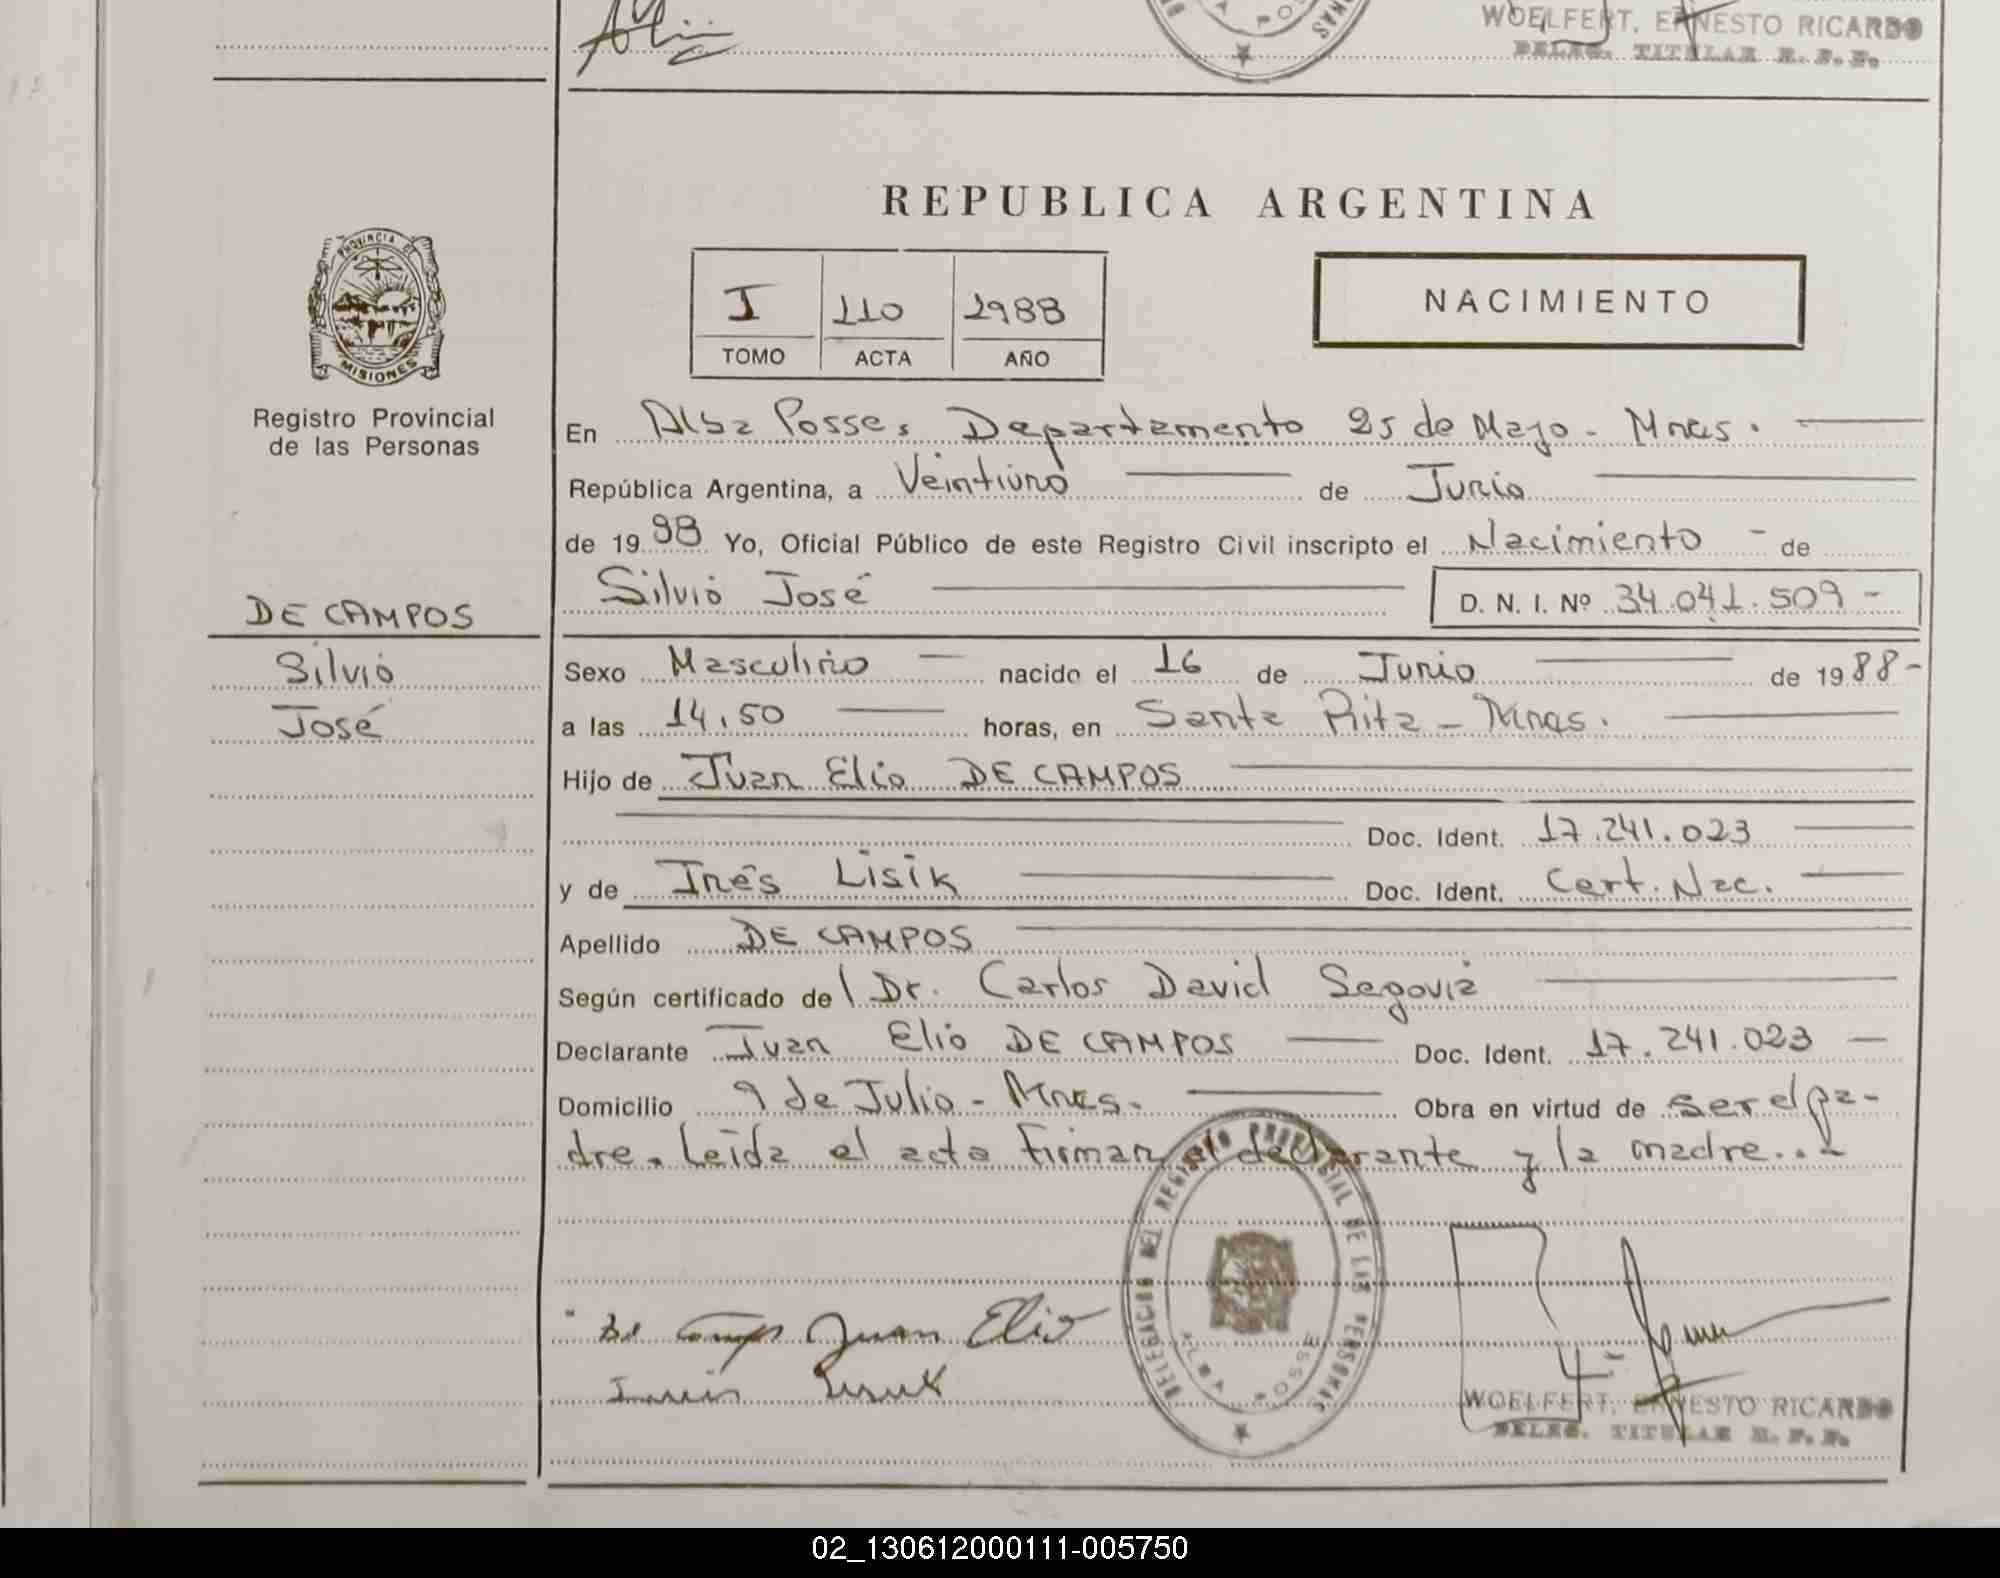 WOELFERT, ERNESTO RICARDO
DELEG. TITULAR R. P. P.
REPUBLICA ARGENTINA
PROVINCIA DE
MISIONES
Registro Provincial
de las Personas
I 110 1988
TOMO ACTA AÑO
NACIMIENTO
En Alba Posse, Departamento 25 de Mayo - Mnes.
República Argentina, a Veintiuno de Junio
de 1988 Yo, Oficial Público de este Registro Civil inscripto el Nacimiento - de
Silvio José D. N. I. Nº 34.041.509 -
DE CAMPOS
Silvio
José
Sexo Masculino nacido el 16 de Junio de 1988 -
a las 14,50 horas, en Santa Rita - Mnes.
Hijo de Juan Elio DE CAMPOS
Doc. Ident. 17.241.023
y de Inés Lisik Doc. Ident. Cert. Nac.
Apellido DE CAMPOS
Según certificado de / Dr. Carlos David Segovia
Declarante Juan Elio DE CAMPOS Doc. Ident. 17.241.023
Domicilio 9 de Julio - Mnes. Obra en virtud de ser el pa-
dre. Leída el acta firman el declarante y la madre...
DELEGACION DEL REGISTRO PROVINCIAL DE LAS PERSONAS
ALBA POSSE
De Campos Juan Elio
WOELFERT, ERNESTO RICARDO
DELEG. TITULAR R. P. P.
02_130612000111-005750